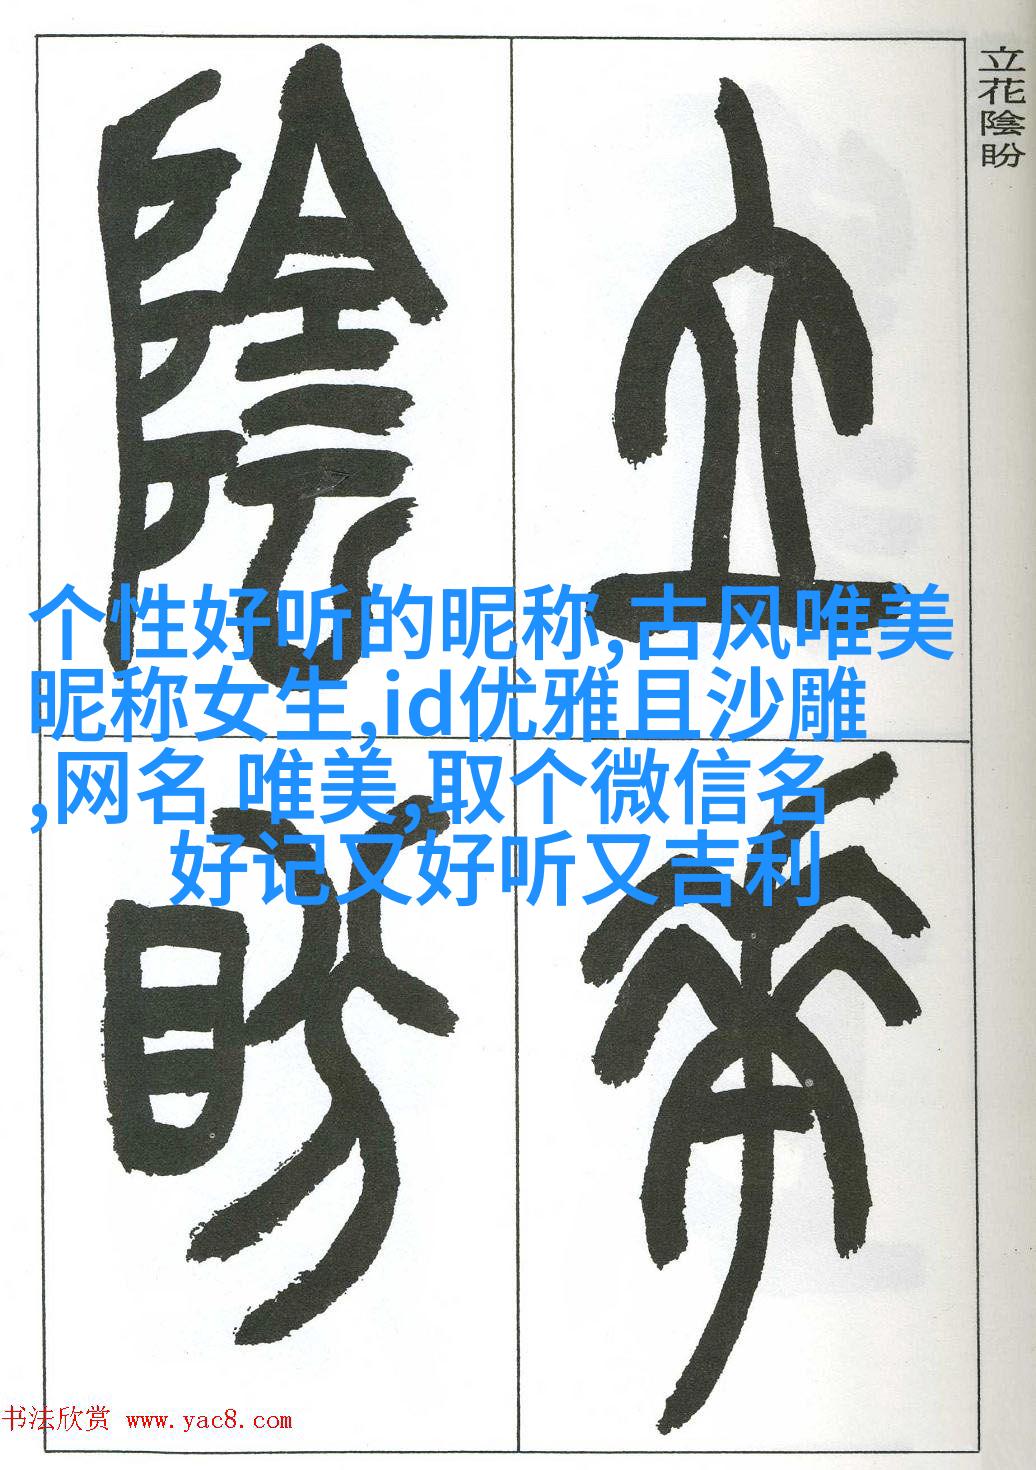 立花陰盼
立
花
陰
盼
个性好听的昵称,古风唯美
昵称女生,id优雅且沙雕
,网名 唯美,取个微信名
好记又好听又吉利
书法欣赏 www.yac8.com